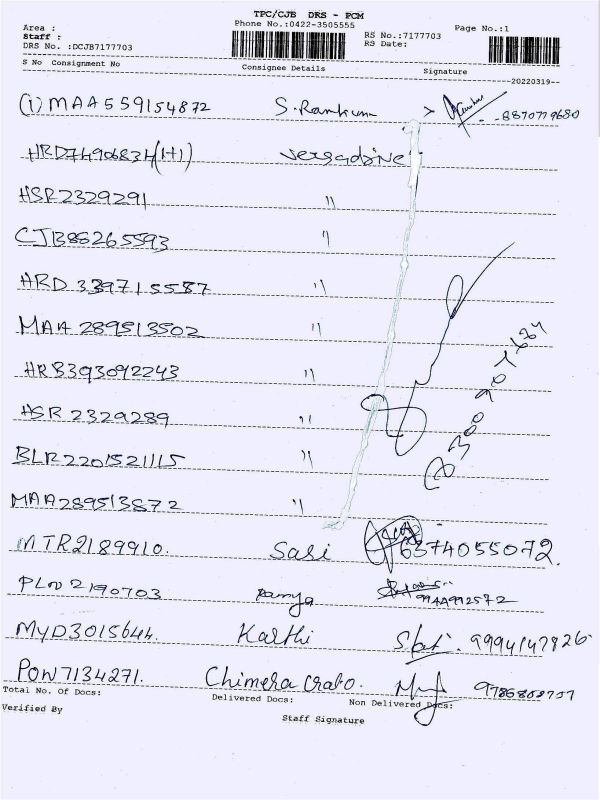 TPC/CJB DRS - PCM
Area : Phone No.:0422-3505555 Page No.:1
Staff : RS No.:7177703
DRS No. :DCJB7177703 RS Date:
S No Consignment No Consignee Details Signature
--20220319--
(1) MAA559154872 S.Ramkum 8870779680
HRD74906834(1+1)
HSR2329291 "
CJB88265593 "
HRD 339715587 "
MAA 289513502 "
HRB393092243 "
HSR 2329289 "
BLR2201521115 "
MAA289513872 "
MTR2189910. Sasi 6374055072.
PLD02190703 Ramya 9944992572
MYD3015644. Karthi 9994147826
POW7134271. Chimera Crato.
Total No. Of Docs: Delivered Docs: Non Delivered Docs:
Verified By Staff Signature